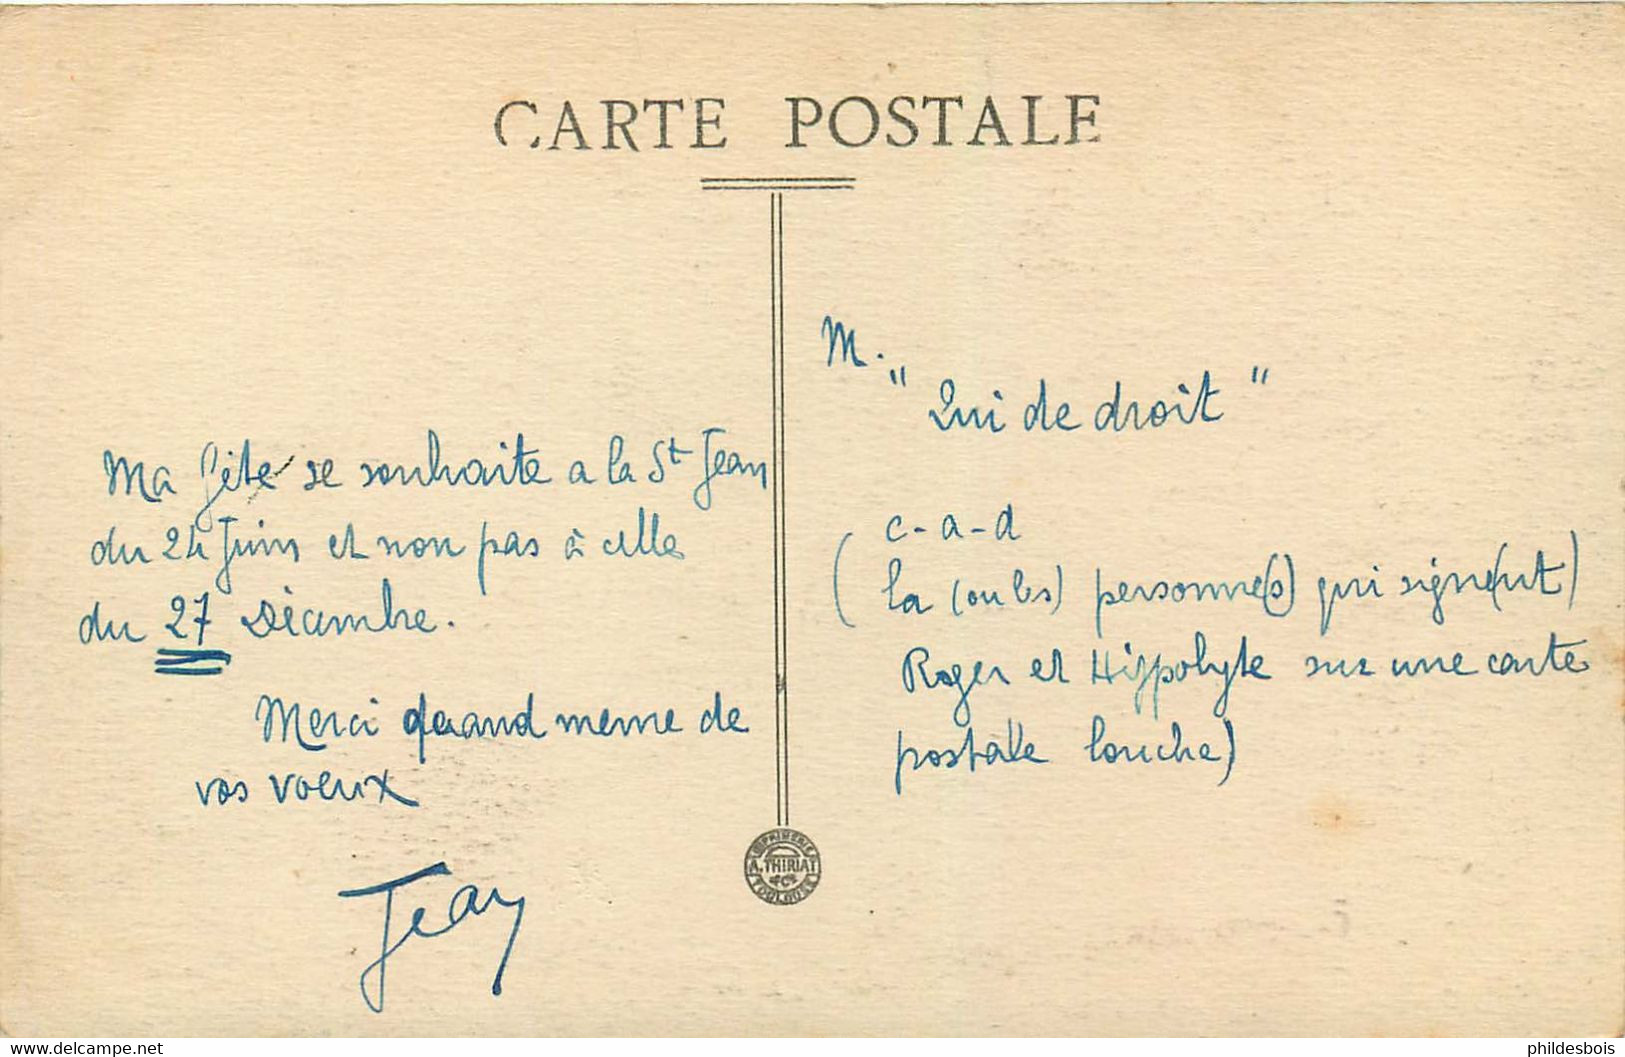 CARTE POSTALE
Ma fête se souhaite a la St Jean
du 24 Juin et non pas à celle
du 27 Décembre.
Merci quand meme de
vos voeux
Jean
M.
" Qui de droit "
c-a-d
(la (ou les) personne(s) qui signe(nt)
Roger et Hippolyte sur une carte
postale louche)
IMPRIMERIE
A. THIRIAT
& Cie
TOULOUSE
www.delcampe.net
phildesbois